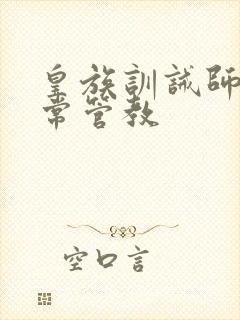 皇族訓誡師
常管教
空口言